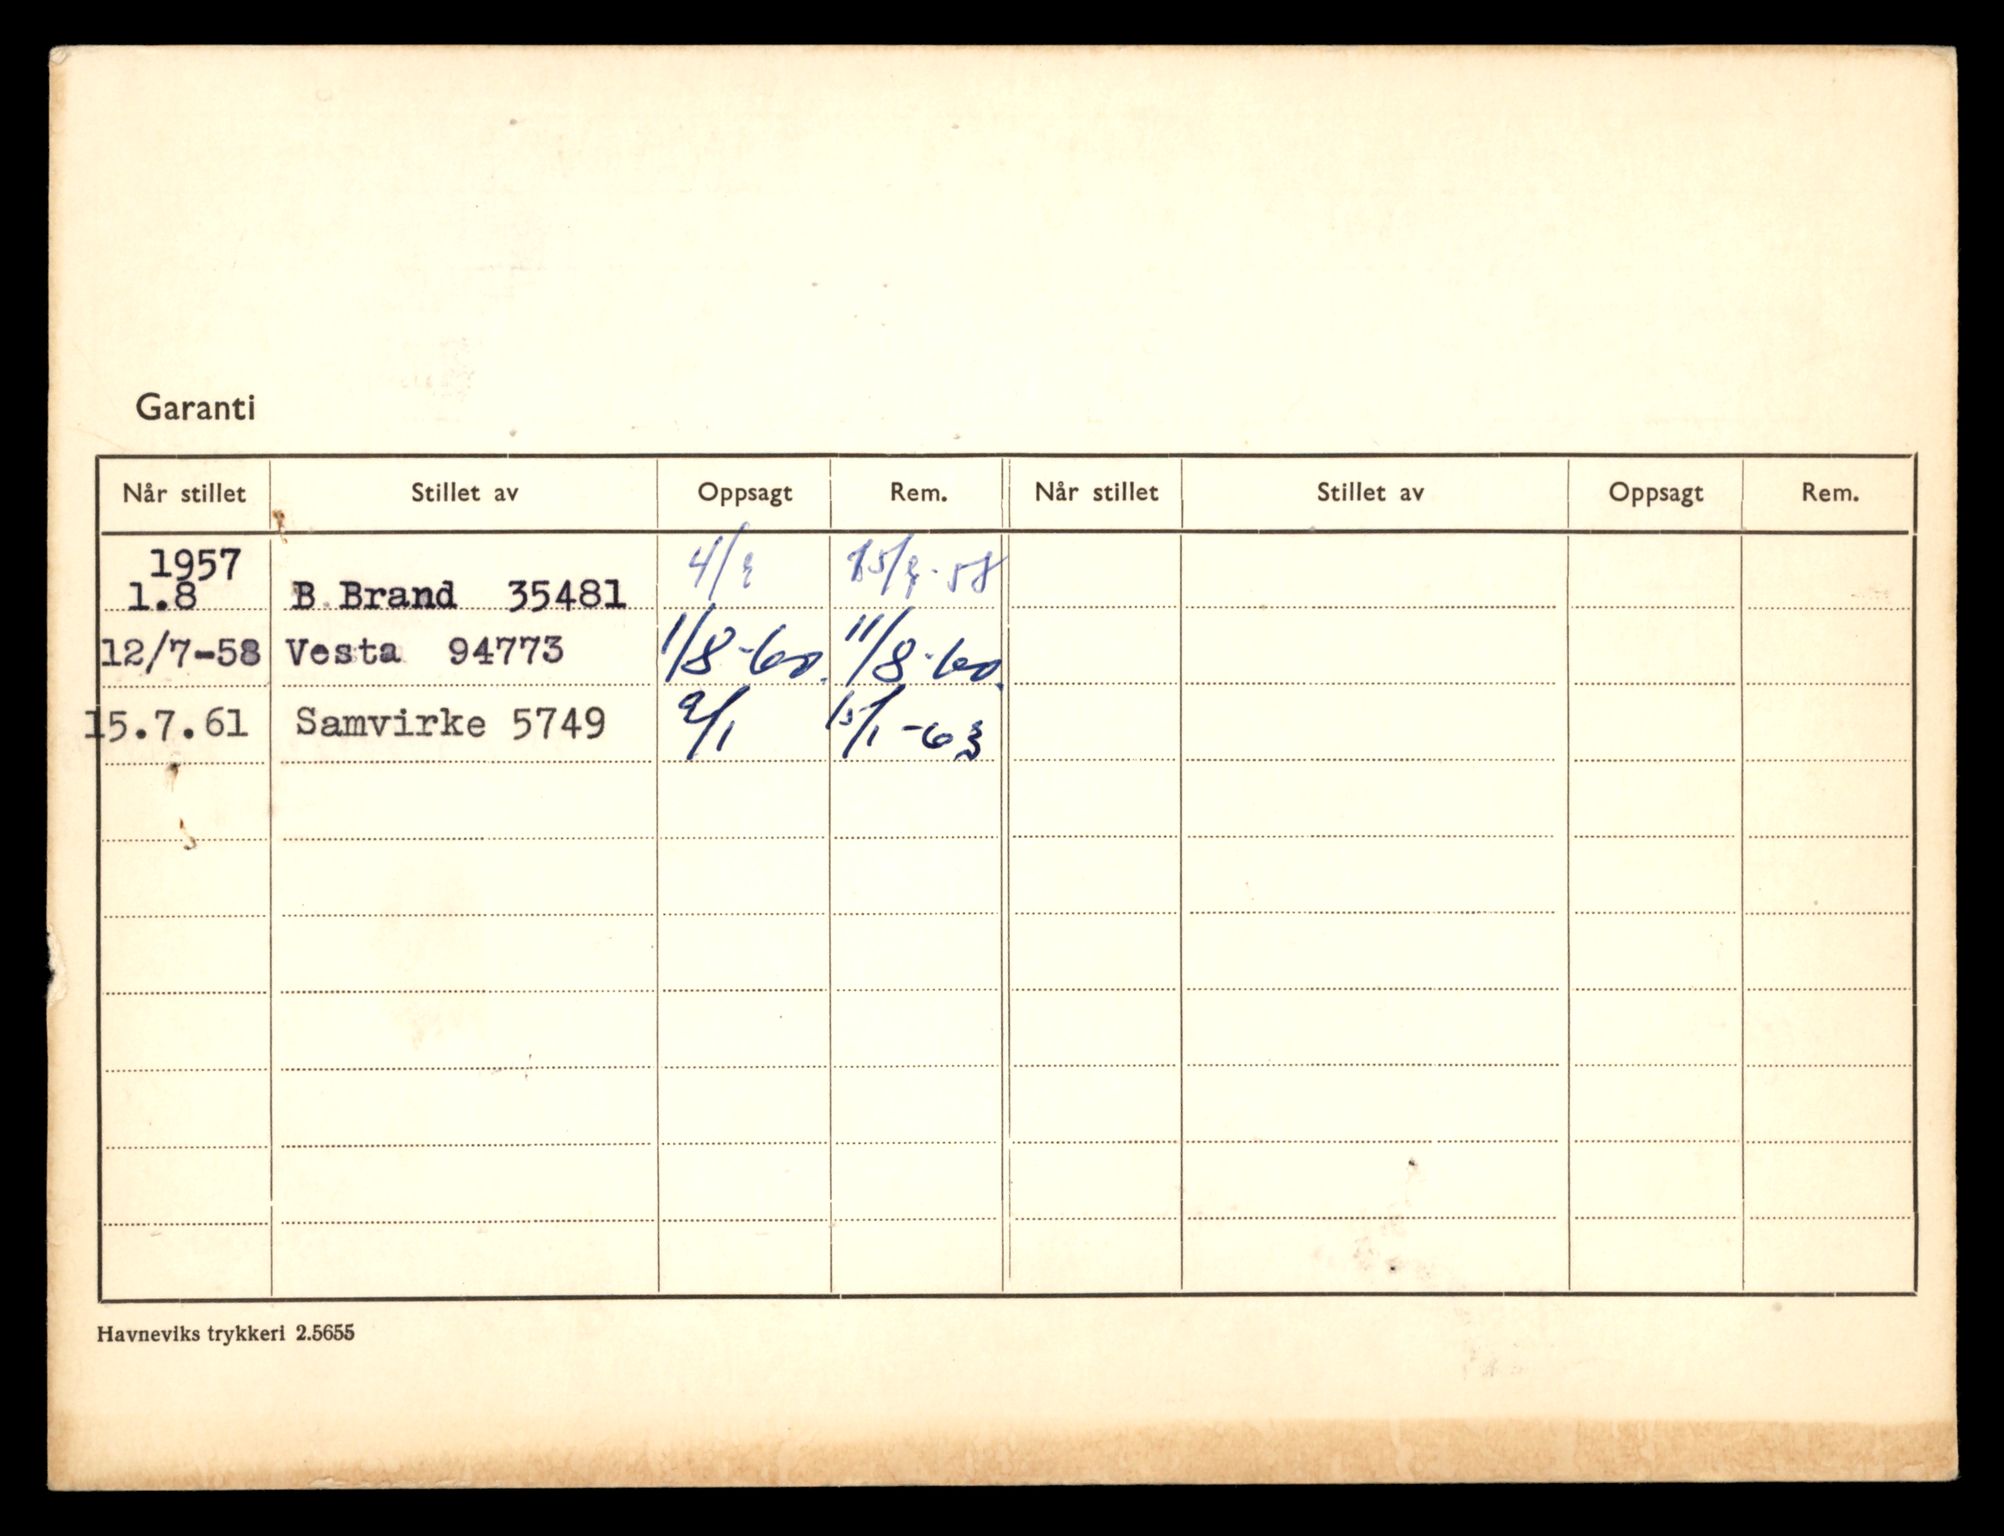 Garanti
Når stillet Stillet av Oppsagt Rem. Når stillet Stillet av Oppsagt Rem.
1957
1.8 B.Brand 35481 4/3 15/3-58
12/7-58 Vesta 94773 1/8-60. 11/8-60.
15.7.61 Samvirke 5749 9/1 15/1-63
Havneviks trykkeri 2.5655